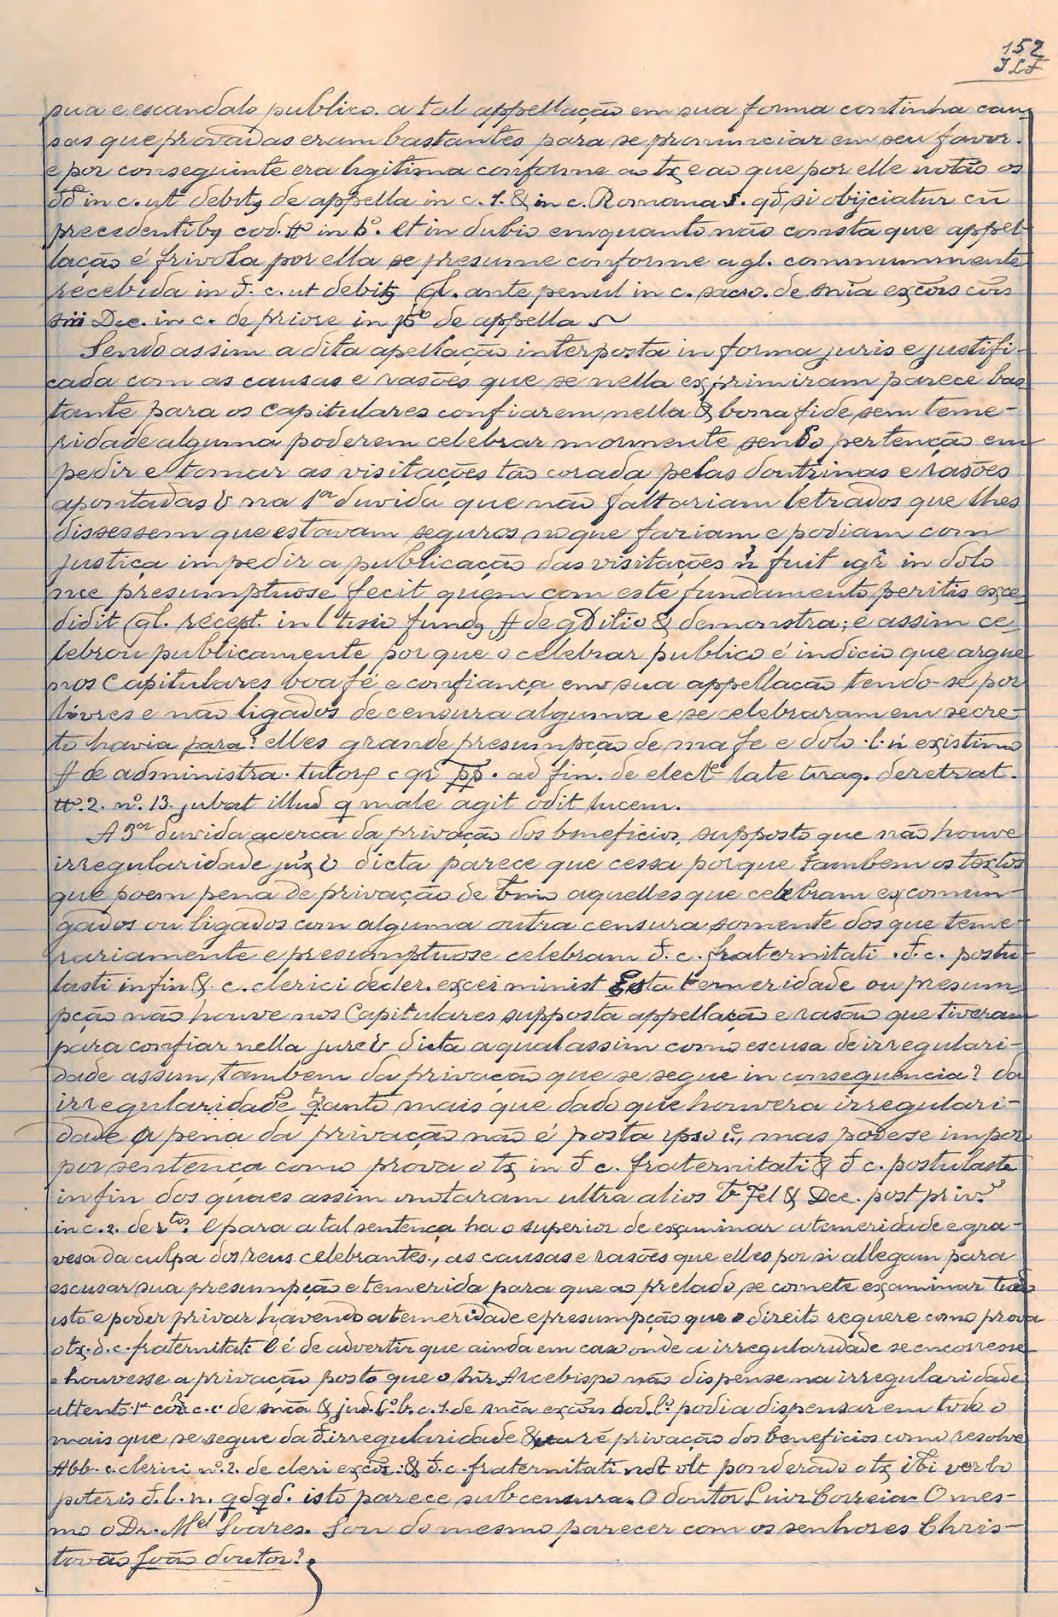 152
JLF
sua e escandalo publico. a tal appellação em sua forma continha cau-
sas que provadas eram bastantes para se pronunciar em seu favor.
e por conseguinte era legitima conforme ao tx e ao que por elle notão os
dd in c. ut debitz de appella in c. 1. & in c. Romana §. qđ si obijciatur cū
precedentibz cod. tto in 6.º et in dubio emquanto não consta que appel-
lação é frivola por ella se presume conforme a gl. communmente
recebida in d. c. ut debitz gl. ante penul in c. sacro. de snia excōis
Dec. in c. de priore in de appella
Sendo assim a dita apellação interposta in forma juris e justifi-
cada com as causas e rasões que se nella exprimiram parece bas-
tante para os capitulares confiarem nella & bona fide, sem teme-
ridade alguma poderem celebrar mormente sendo pertenção em
pedir e tomar as visitações tão corada pelas doutrinas e rasões
apontadas na 1ª duvida que não faltariam letrados que lhes
dissessem que estavam seguros no que fariam e podiam com
justiça impedir a publicação das visitações ñ fuit igr in dolo
nec presumptuose fecit quem com este fundamento peritis exce-
didit gl. recept. in l tisio fundz ff de gDitio & demonstra; e assim ce-
lebrou publicamente porque o celebrar publico é indicio que argue
nos Capitulares boa fé e confiança em sua appellação tendo-se por
livres e não ligados de censura alguma e se celebraram em secre-
to havia para? elles grande presumpção de ma fe e dolo. l. ñ existimo
ff de administra. tutor c qr pp. ad fin. de electe late tiraq. de retrat.
tto. 2. nº. 13. jubat illud q male agit odit lucem.
A 3ª duvida acerca da privação dos beneficios, supposto que não houve
irregularidade dicta parece que cessa porque tambem os textos
que poem pena de privação de aquelles que celebram excomun-
gados ou ligados com alguma outra censura somente dos que teme-
rariamente e presumptuose celebram d. c. fraternitati. d. c. postu-
lasti in fin & c. clerici de cler. minist Esta temeridade ou presum-
pção não houve nos Capitulares supposta appellação e rasão que tiveram
para confiar nella jure dicta a qual assim como escusa de irregulari-
dade assim, tambem da privação que se segue in consequencia? da
irregularidade qanto mais que dado que houvera irregulari-
dade a pena da privação não é posta ipso, mas podese impor
por sentença como prova o tx in d c. fraternitati & d c. postulaste
in fin dos quaes assim notaram ultra alios Fel & Dec. post priv.
in c. 2. de rtos. e para a tal sentença ha o superior de examinar a temeridade e gra-
vesa da culpa dos reus celebrantes, as causas e rasões que elles por si allegam para
escusar sua presumpção e temerida para que ao prelado se comete examinar tudo
isto e poder privar havendo a temeridade e presumpção que o direito requere como prova
o tx. d. c. fraternitati e é de advertir que ainda em caso onde a irregularidade se encorresse
e houvesse a privação posto que o Snr Arcebispo não dispense na irregularidade
attento c. de snca & jud. c. 1. de snca excōn podia dispensar em todo o
mais que se segue da d irregularidade & é privação dos beneficios como resolve
Abb. c. clerici nº. 2. de cleri & d. c. fraternitati not olt ponderado o tx ibi verbo
poteris d. l. n. qdqd. isto parece sub censura. O doutor Luiz Correia. O mes-
mo o Dr. Mel Soares. Sou do mesmo parecer com os senhores Chris-
tovão João doutor?